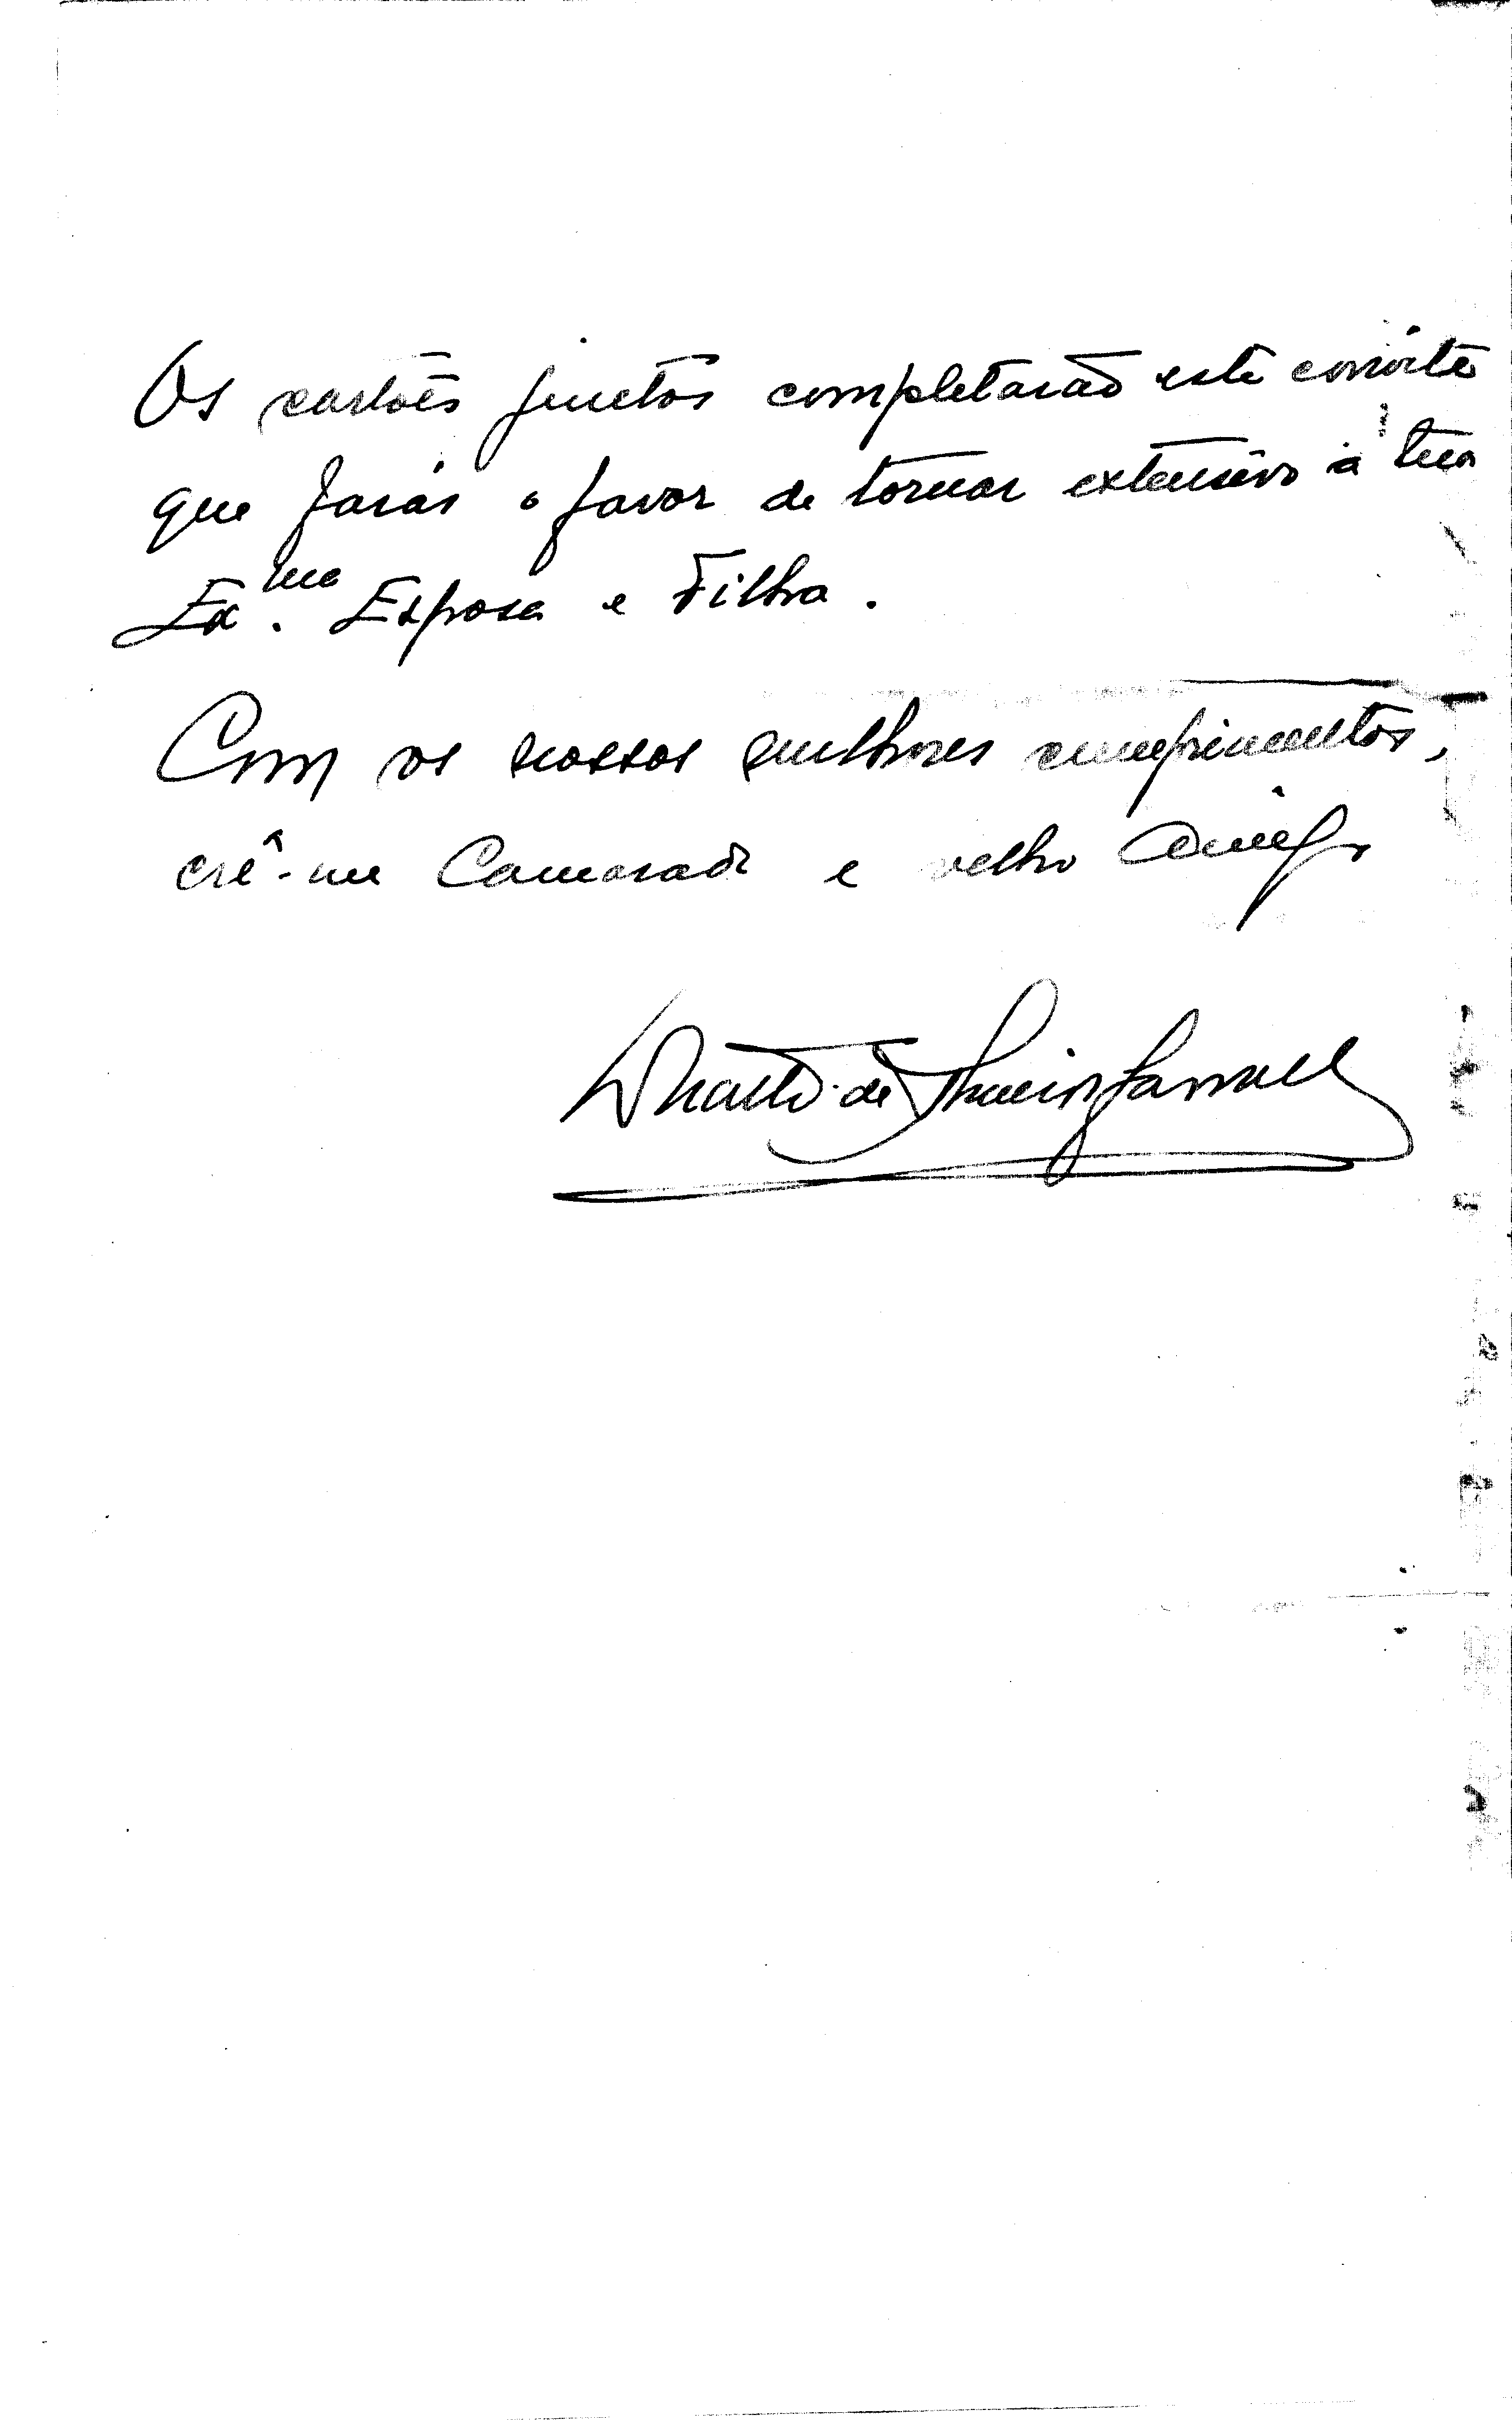 Os cartões juntos completarão este convite
que farás o favor de tornar extensivo à tua
Ex.ma Esposa e Filha.
Com os nossos melhores cumprimentos,
crê-me Camarada e velho Amigo
de